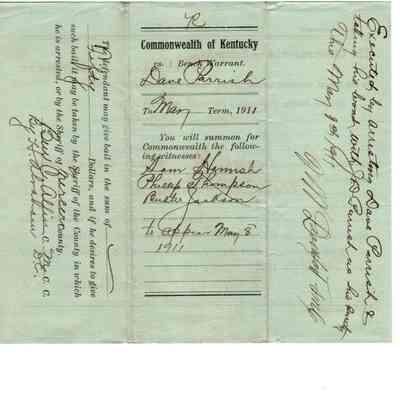 R
Commonwealth of Kentucky
vs.: Bench Warrant.
Dave Parrish
To May Term, 1911
You will summon for
Commonwealth the follow-
ing witnesses:
Sam
Phillip Thompson
Jackson
to appear May 8
1911
The Defendant may give bail in the sum of
Fifty Dollars, and if he desires to give
such bail it may be taken by the Sheriff of the County in which
he is arrested, or by the Sheriff of Mercer County
Ben C Allin C. M. C. C.
By D.C.
Executed by arresting Dave Parrish &
taking his bond with Parrish as his surety
This May 8th 1911